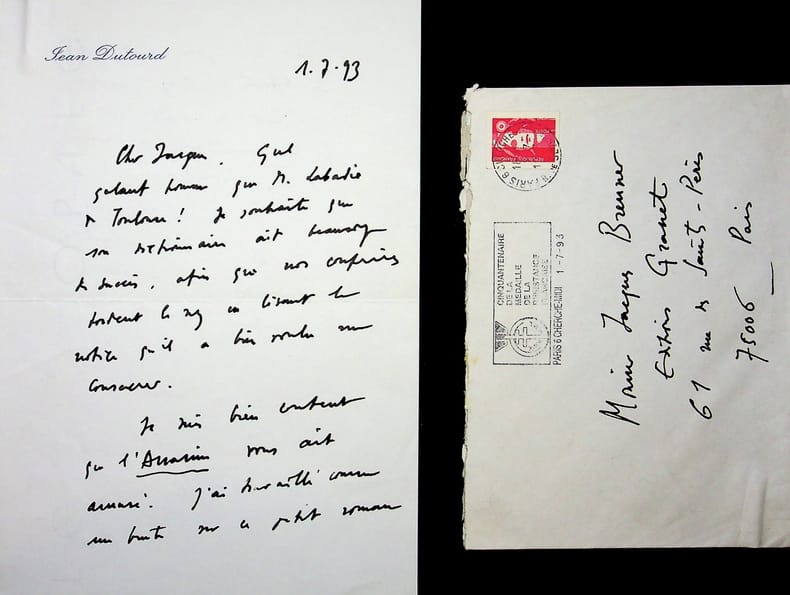 Jean Dutourd
1.7.93
Cher Jacques, Quel
galant homme que M. Labadie
de Toulouse ! Je souhaite que
son dictionnaire ait beaucoup
de succès, afin que nos confrères
tordent le nez en lisant la
notice qu'il a bien voulu me
consacrer.
Je suis bien content
que l'Assassin vous ait
amusé. J'ai travaillé comme
une brute sur ce petit roman
RÉPUBLIQUE FRANÇAISE
PARIS 6
CINQUANTENAIRE
DE LA
MÉDAILLE
DE LA
RÉSISTANCE
FRANÇAISE
PARIS 6 CHERCHE-MIDI 1-7-93
Monsieur Jacques Brenner
Editions Grasset
61 rue des Saints-Pères
75006 Paris